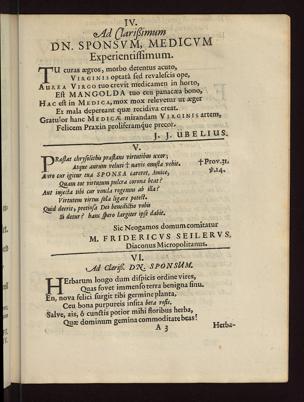 IV.
Ad Clarissimum
DN. SPONSVM, MEDICVM
Experientissimum.
TU curas ægros, morbo detentus acuto,
VIRGINIS optatâ sed revalescis ope,
AUREA VIRGO tuo crevit medicamen in horto,
Est MANGOLDA tuo ceu panacæa bono,
HAC est in MEDICA, mox mox relevetur ut æger
Et mala depereant quæ recidiva creat.
Gratulor hanc MEDICÆ mirandam VIRGINIS artem,
Felicem Praxin proliferamque precor.
J. J. UBELIUS.
V.
PRæstas chrysolitho præstans virtutibus uxor,
Atque aurum veluti † navis onusta vehis.
† Prov. 31.
v. 14.
Auro cur igitur tua SPONSA careret, Amice,
Quam tot virtutum pulcra corona beat?
Aut injecta tibi cur vincla rogemus ab illa?
Virtutem virtus sola ligare potest.
Quid deerit, pretiosa Dei benedictio vobis
Si detur? hanc spero largiter ipse dabit.
Sic Neogamos domum comitatur
M. FRIDERICUS SEILERUS,
Diaconus Micropolitanus.
VI.
Ad Clariss. DN. SPONSUM.
HErbarum longo dum dispicis ordine vires,
Quas fovet immenso terra benigna sinu.
En, nova felici surgit tibi germine planta,
Ceu bona purpureis insita beta rosis.
Salve, ais, ô cunctis potior mihi floribus herba,
Quæ dominum gemina commoditate beas!
A 3
Herba-